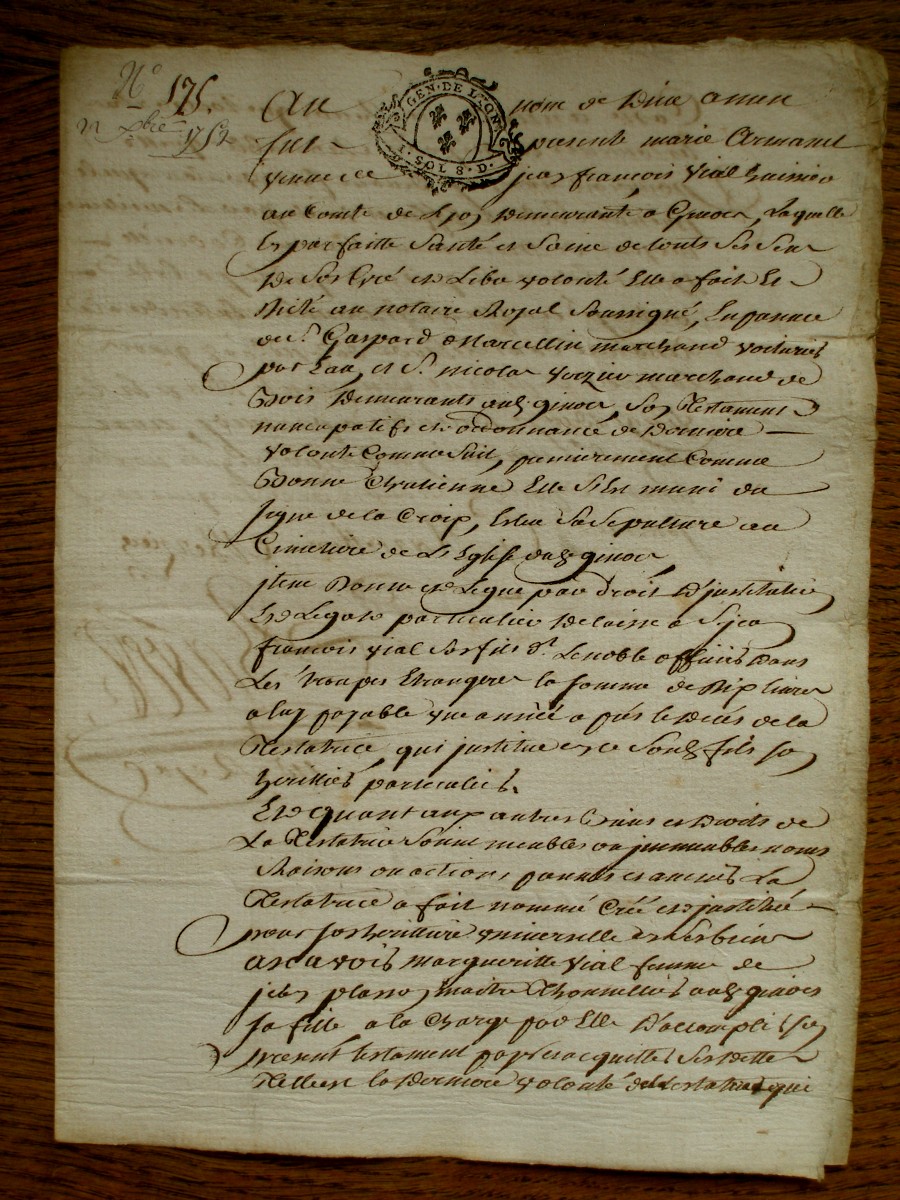 N° 175.
xbre 1752
GEN. DE LYON
1. SOLS 8. D.
Au nom de Dieu amen
fut presente marie Armand
veuve de jean francois vial huissier
au Comté de Lyon Demeurante a Givors, Laquelle
En parfaitte Santé et Saine de touts Ses Sens
De Son Gré et Libre volonté Elle a fait Et
Dicté au notaire Royal Soussigné, En presence
de Sr. Gaspard Marcellin marchand voiturier
par Eau, et Sr. nicolas verzier marchand de
Bois Demeurants aud. givors, Son Testament
nuncupatif et ordonnance de Derniere
volonté Comme Suit, premierement Comme
Bonne Chretienne Elle S'est muni du
signe de la Croix, Esleu Sa Sepulture au
Cimetiere de L'Eglise dud. givors
jtem Donne et Legue par droit D'jnstitution
Et Legat particulier Delaisse a Sr. jean
francois vial Son fils dt. Lenoble officier Dans
Les troupes Etrangeres la somme de Dix livres
a luy payable une année après le Décès de la
Testatrice, qui jnstitue en ce Soud. fils son
heritier particulier.
Et quant aux autres biens et Droits de
La Testatrice Soient meubles ou jmmeubles noms
Raisons ou actions, parmis et avenir La
Testatrice a fait nommé Créé et jnstitué
pour son heritiere universelle en ses biens
a scavoir margueritte vial femme de
jean plasson maitre Thonnellier aud. givors
sa fille a la Charge par Elle D'accomplir son
present testament payer et acquitter Ses Dettes
Telle est la Derniere volonté de la testatrice qui